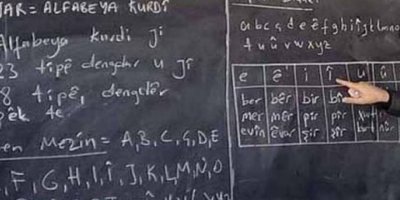 JAR = ALFABEYA KURDÎ
Alfabeya Kurdî ji
23 tîpê dengdar u ji
8 tîpê, dengdêr
pêk tê
en Mezin = A, B, C, Ç, D, E
F, G, H, I, Î, J, K, L, M, N, O
a b c ç d e ê f g h i î j k l m n o
t u û v w x y z
e ê i î u û
ber bêr bir bîr
mer mêr pir pîr
evîn êvar şîr